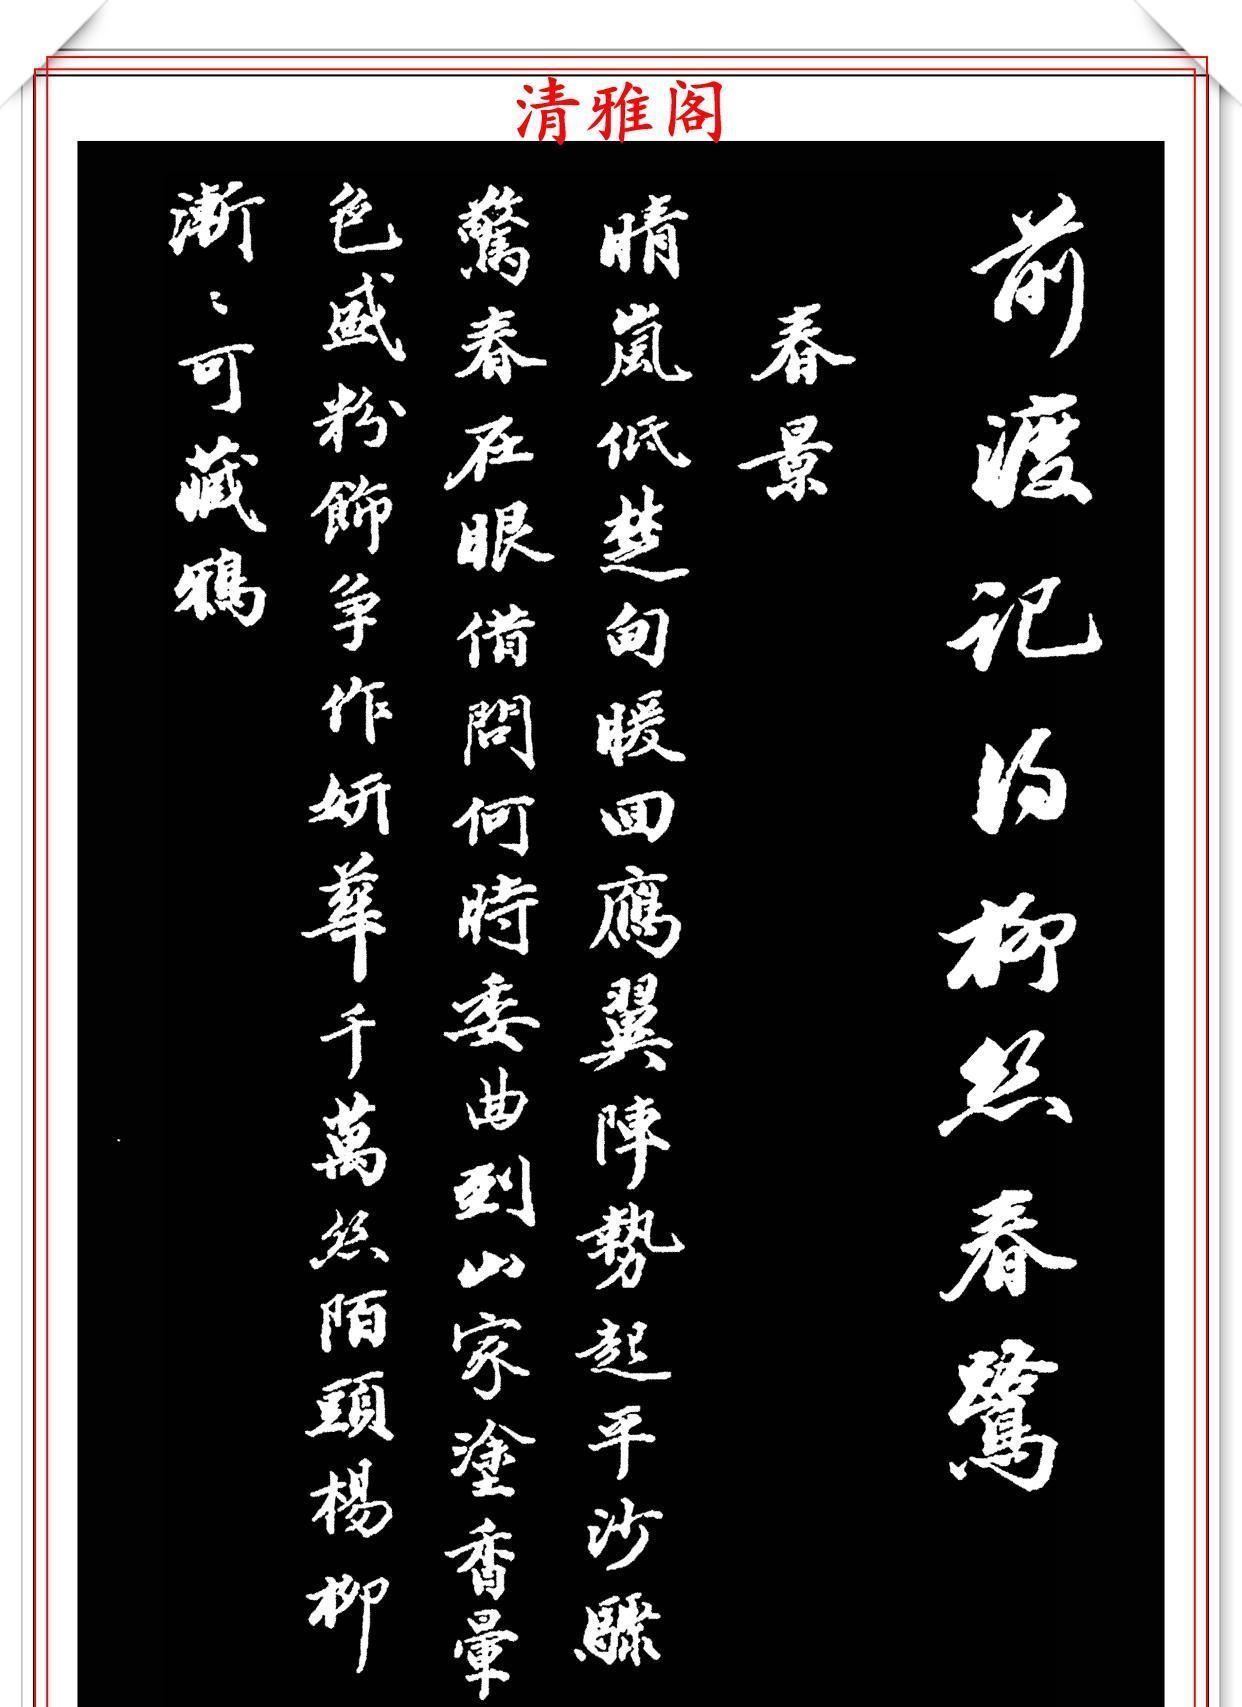 清雅阁
前渡記得柳絲春鷺
春景
晴嵐低楚甸暖回鴈翼陣勢起平沙驟
驚春在眼借問何時委曲到山家塗香暈
色盛粉飾争作妍華千萬絲陌頭楊柳
漸〻可藏鴉